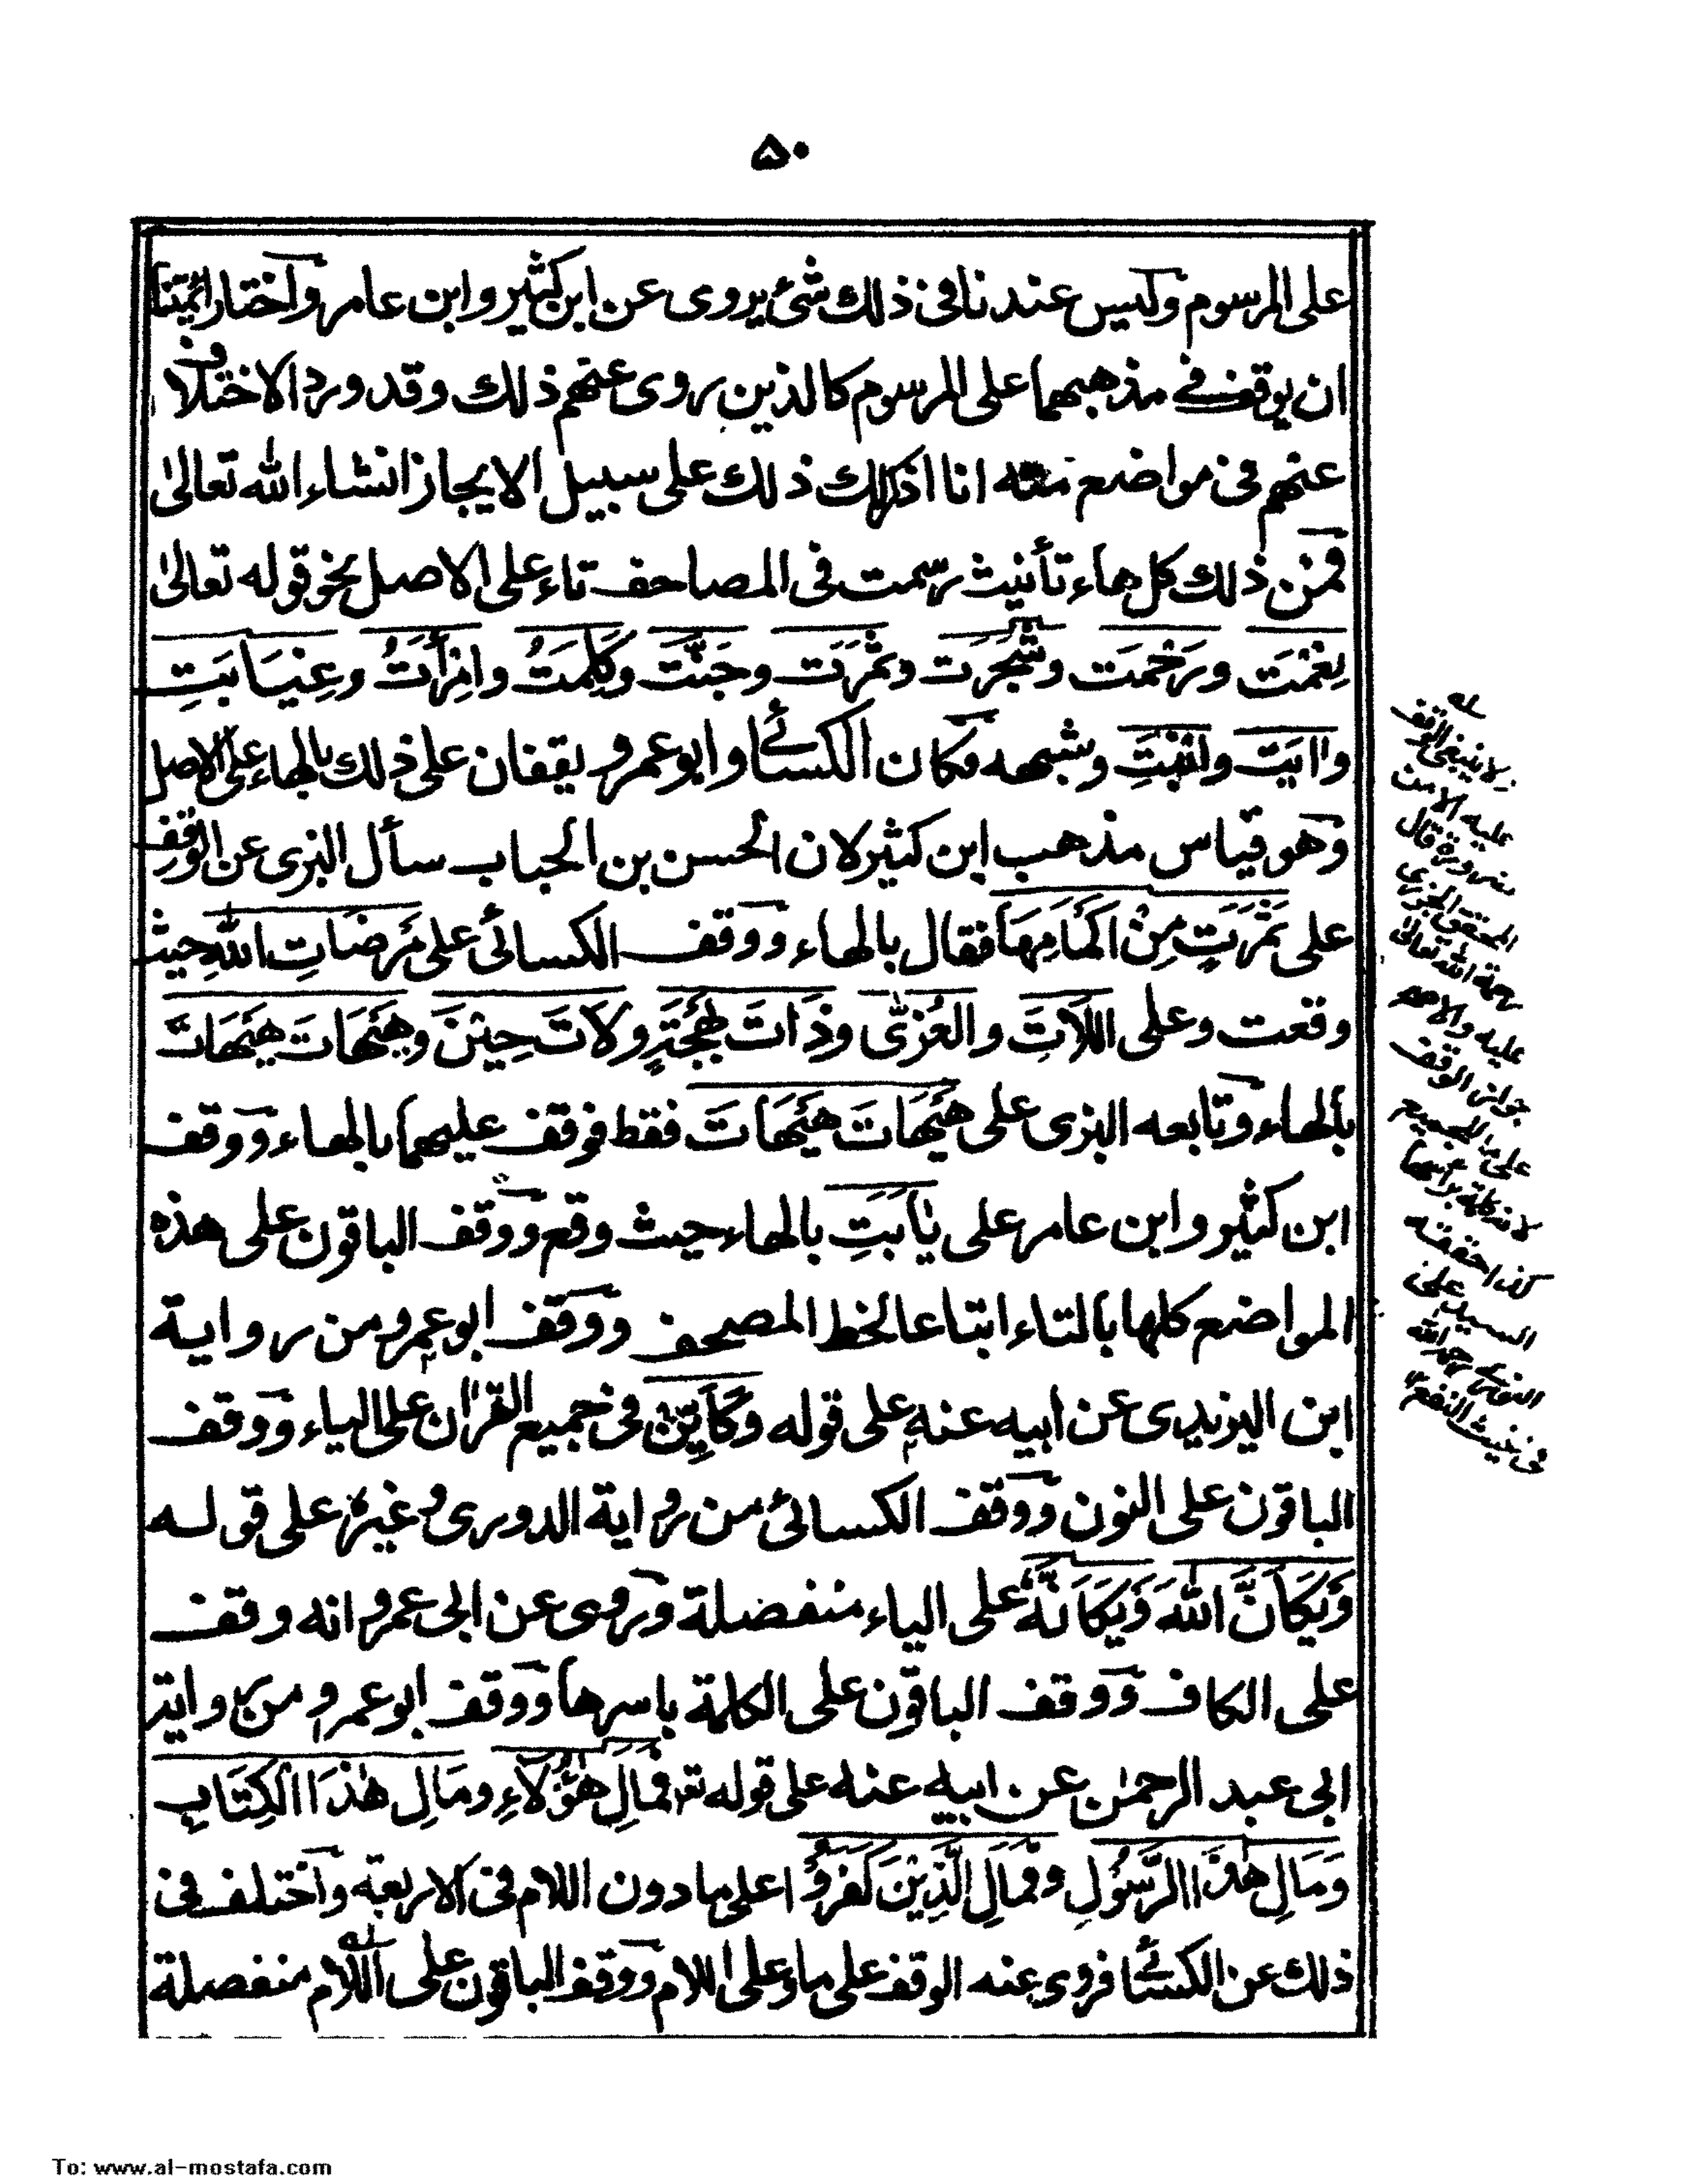 ۵۰
على المرسوم وليس عندنا فى ذلك شئ يروى عن ابن كثير وابن عامر واختار ائمتنا
ان يوقف فے مذهبهما على المرسوم كالذين روى عنهم ذلك وقد ورد الاختلاف
عنهم فى مواضع منه انا اذكر لك ذلك على سبيل الايجاز انشاء الله تعالىٰ
فمن ذلك كل هاء تأنيث رسمت فى المصاحف تاء على الاصل نحو قوله تعالىٰ
نِعْمَتَ ورَحْمَت وشَجَرَت وثَمَرَت وجَنَّت وكَلِمَتُ وامْرَأَتُ وغِيَابَتِ
واٰيَت وابْنَتَ وشبهه فكان الكسائے وابو عمرو يقفان على ذلك بالهاء على الاصل
وهو قياس مذهب ابن كثير لان الحسن بن الحباب سأل البزى عن الوقف
على ثَمَرَتٍ مِنْ اَكْمَامِهَا فقال بالهاء ووقف الكسائى على مَرْضَاتِ اللّٰهِ حيث
وقعت وعلى اللَّاتَ والعُزّٰى وذَاتَ بَهْجَةٍ ولَاتَ حِيْنَ وهَيْهَاتَ هَيْهَاتَ
بالهاء وتابعه البزى على هَيْهَاتَ هَيْهَاتَ فقط فوقف عليهما بالهاء ووقف
ابن كثير وابن عامر على يٰاَبَتِ بالهاء حيث وقع ووقف الباقون على هذه
المواضع كلها بالتاء اتباعا لخط المصحف ووقف ابو عمرو من رواية
ابن اليزيدى عن ابيه عنه على قوله وكَاَيِّنْ فى جميع القرآن على الياء ووقف
الباقون على النون ووقف الكسائى من رواية الدورى وغيره على قوله
وَيْكَاَنَّ اللّٰهَ وَيْكَاَنَّهٗ على الياء منفصلة وروى عن ابى عمرو انه وقف
على الكاف ووقف الباقون على الكلمة باسرها ووقف ابو عمرو من رواية
ابى عبد الرحمٰن عن ابيه عنه على قوله تع فَمَالِ هٰؤُلَاءِ ومَالِ هٰذَا الْكِتَابِ
وَمَالِ هٰذَا الرَّسُوْلِ وفَمَالِ الَّذِيْنَ كَفَرُوْا على ما دون اللام فى الاربعة واختلف فى
ذلك عن الكسائے فروى عنه الوقف على ما وعلى اللام ووقف الباقون على اللام منفصلة
لا ينبغى الوقف
عليه الا من
ضرورة قال
المحقق الجزرى
رحمة الله تعالى
عليه والاصح
جواز الوقف
على ما للجميع
لانه كلمة برأسها
كذا حققه
السيد على
النورى رحمه الله
فى غيث النفع
To: www.al-mostafa.com